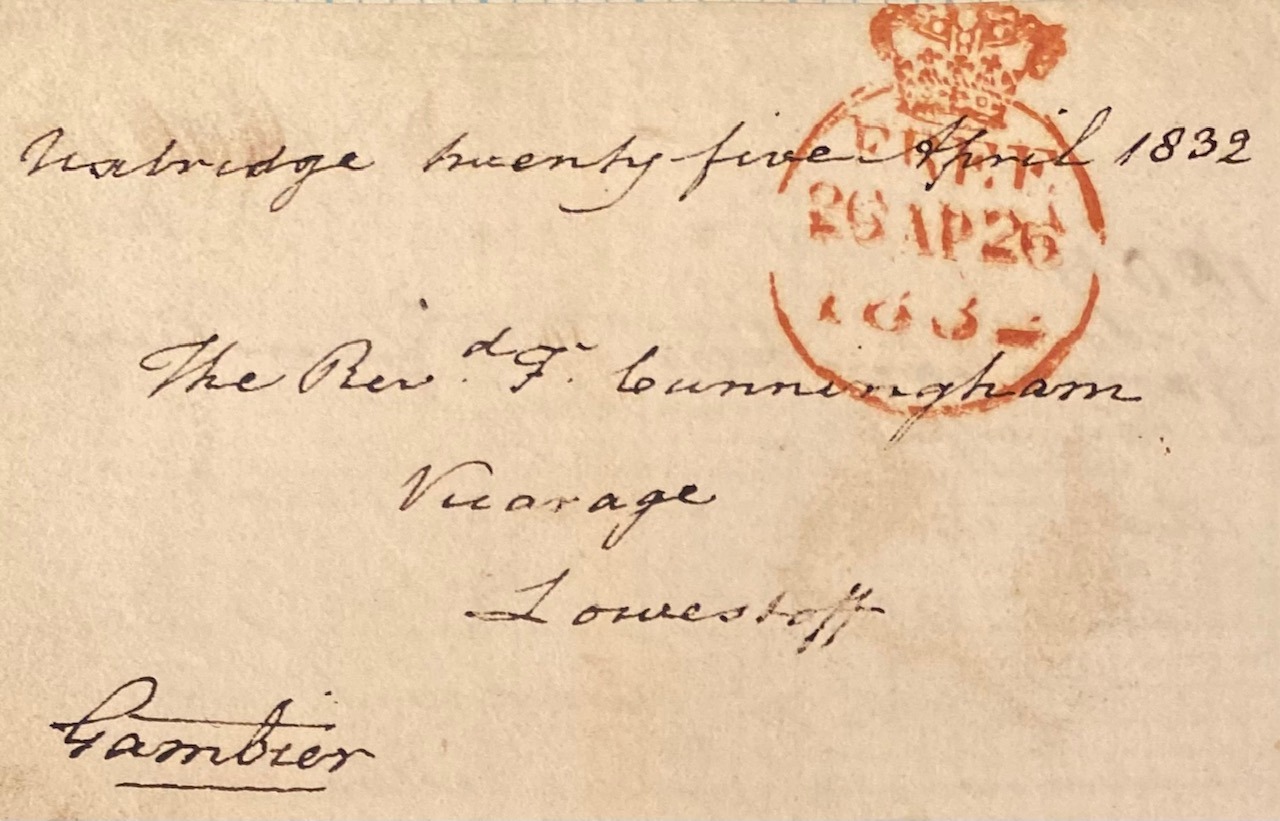 Uxbridge twenty five April 1832
FREE
26 AP 26
1832
The Revd. F. Cunningham
Vicarage
Lowestoff
Gambier